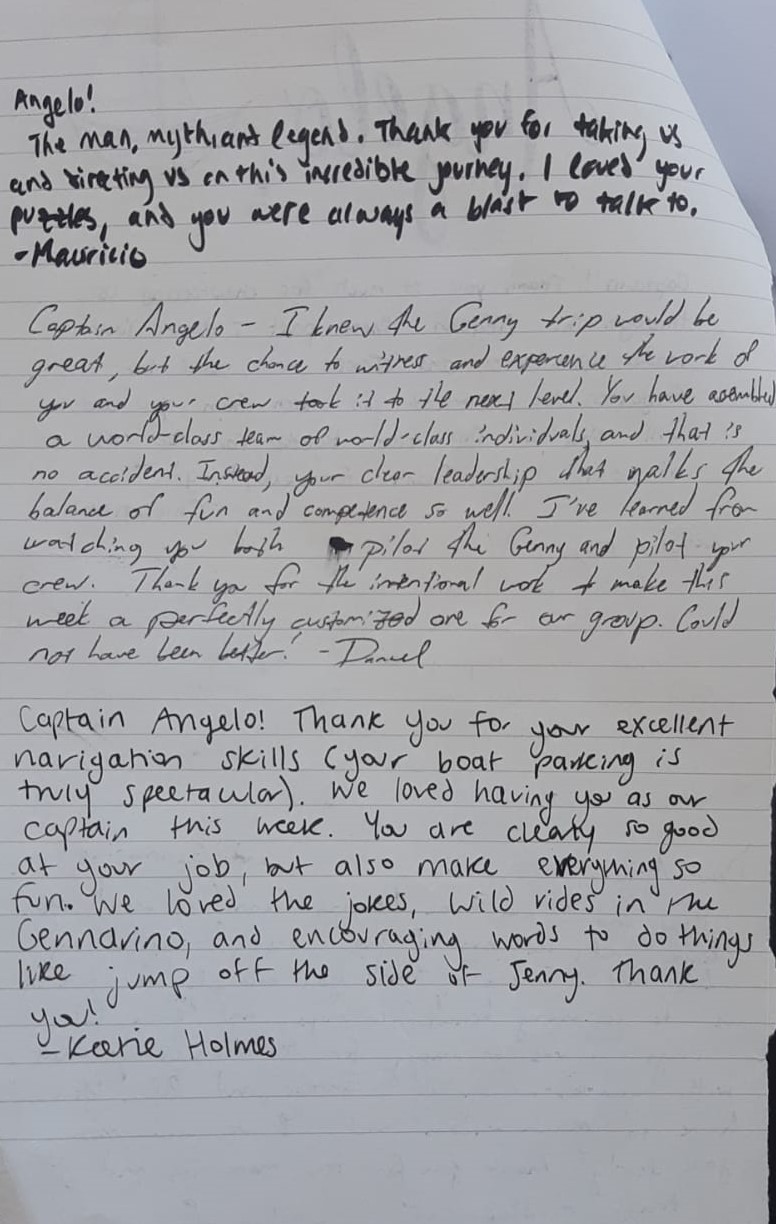 Angelo!
The man, myth, and legend. Thank you for taking us
and directing us on this incredible journey. I loved your
puzzles, and you were always a blast to talk to.
-Mauricio
Captain Angelo - I knew the Genny trip would be
great, but the chance to witness and experience the work of
you and your crew took it to the next level. You have asembled
a world-class team of world-class individuals, and that is
no accident. Instead, your clear leadership that walks the
balance of fun and competence so well. I've learned from
watching you both pilot the Genny and pilot your
crew. Thank you for the intentional work to make this
week a perfectly customized one for our group. Could
not have been better! - Daniel
Captain Angelo! Thank you for your excellent
navigation skills (your boat parking is
truly spectacular). We loved having you as our
captain this week. You are clearly so good
at your job, but also make everything so
fun. We loved the jokes, wild rides in the
Gennarino, and encouraging words to do things
like jump off the side of Jenny. Thank
you!
- Katie Holmes